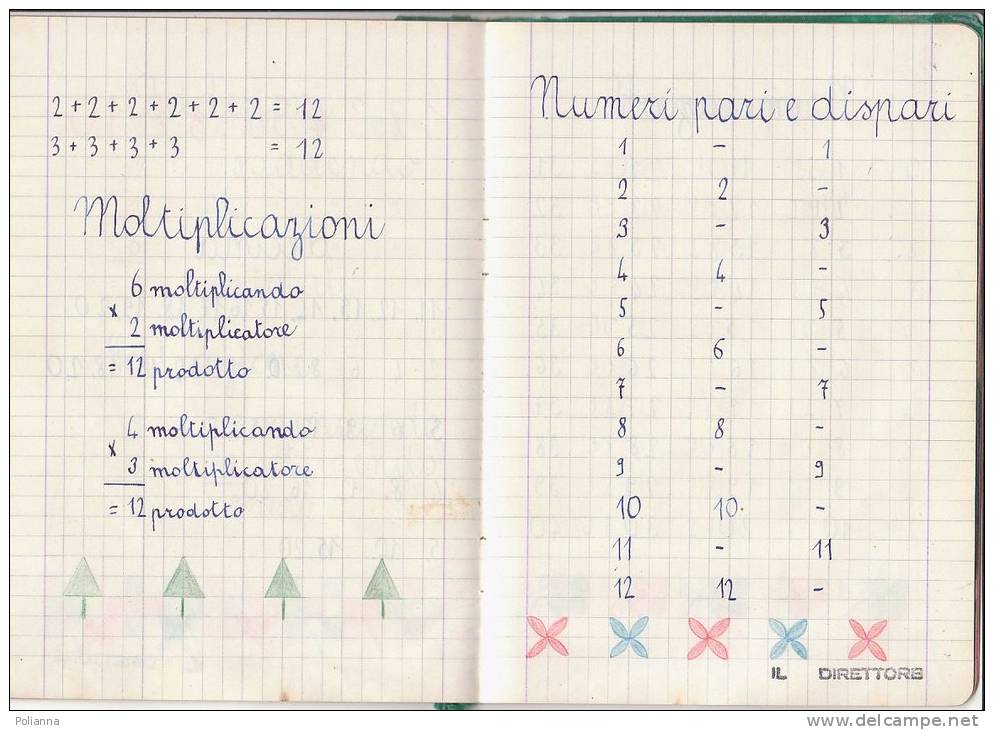 2 + 2 + 2 + 2 + 2 + 2 = 12
3 + 3 + 3 + 3 = 12
Moltiplicazioni
6 moltiplicando
x
2 moltiplicatore
= 12 prodotto
4 moltiplicando
x
3 moltiplicatore
= 12 prodotto
Numeri pari e dispari
1 - 1
2 2 -
3 - 3
4 4 -
5 - 5
6 6 -
7 - 7
8 8 -
9 - 9
10 10. -
11 - 11
12 12 -
IL DIRETTORE
Polianna
www.delcampe.net